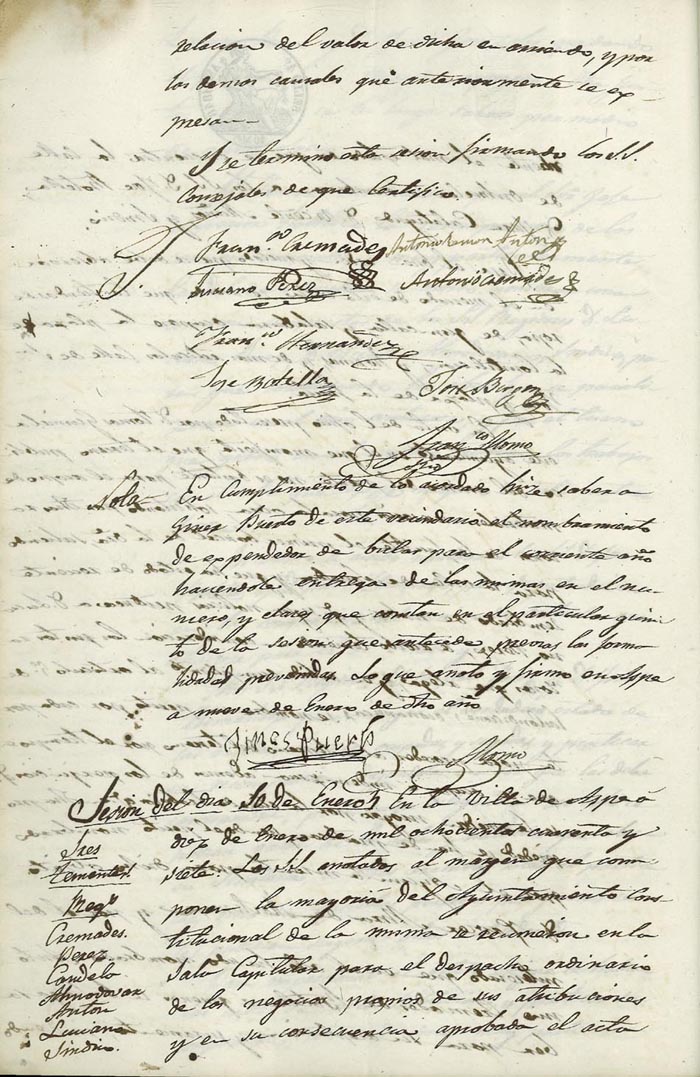 relacion del valor de dicha en arriendo, y por
las demas causales que anteriormente se ex-
presan
Y se termino esta sesion firmando los S.S.
Concejales de que Certifico.
Fran.co Cremades
Antonio Ramon Anton
Luciano Perez
Antonio Cremades
Fran.co Hernandez
Jose Botella
Jose
Fran.co Alomo
Nota En Cumplimiento de lo acordado hize saber a
Gines Puerto de este vecindario el nombramiento
de expendedor de bulas para el corriente año
haciendole entrega de las mismas en el nu-
mero, y clases que constan en el particular quin-
to de la sesion que antecede previas las forma
lidadad prevenidas. Lo que anoto y firmo en Aspe
a nueve de Enero de dho año
Gines Puerto
Alomo
Sesion del dia 10 de Enero En la Villa de Aspe á
diez de Enero de mil ochocientos cuarenta y
siete: Los SS. anotados al margen que com-
ponen la mayoria del Ayuntamiento Cons-
titucional de la misma se reunieron en la
Sala Capitular para el despacho ordinario
de los negocios propios de sus atribuciones
y en su consecuencia aprobada el acta
Sres
Tenientes
Reg.s
Cremades.
Perez
Candela
Almodovar
Anton
Luciano
Sindico.